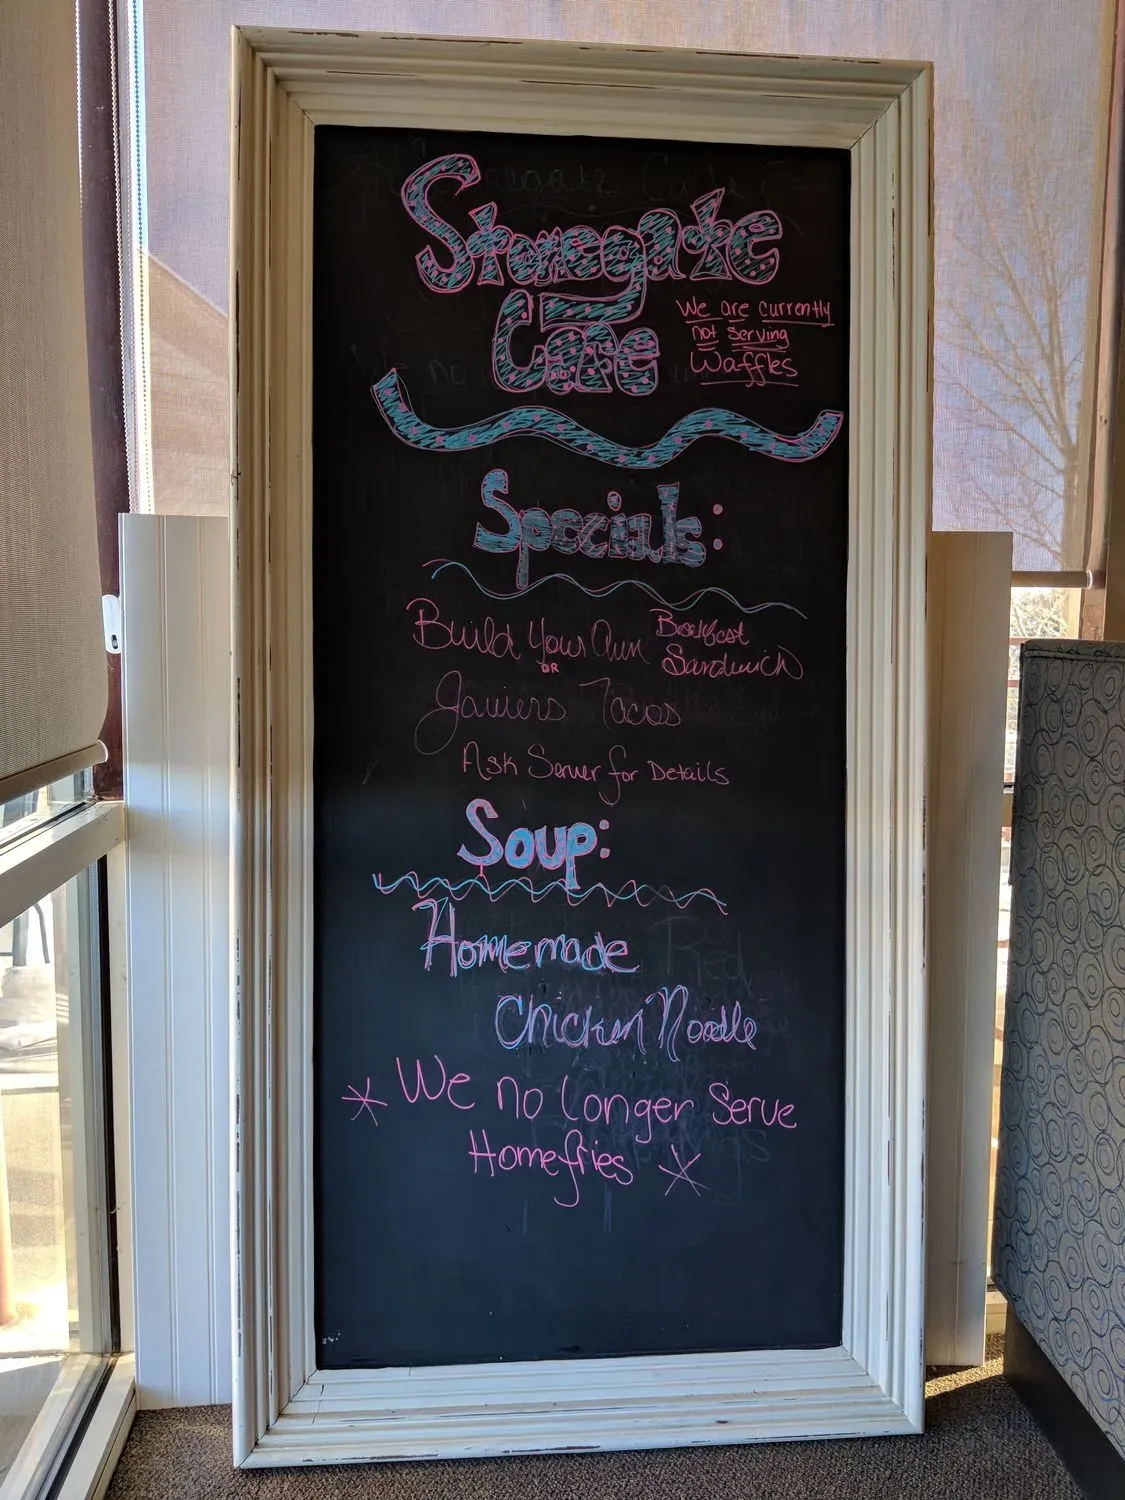 Stonegate
Cafe
We are currently
not serving
Waffles
Specials:
Build Your Own Breakfast
Sandwich
OR
Javiers Tacos
Ask Server for Details
Soup:
Homemade
Chicken Noodle
* We no longer Serve
Homefries *